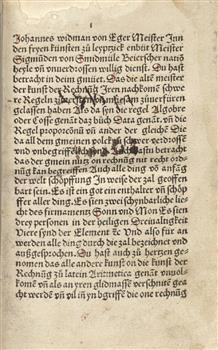 Johannes widman von Eger Meister Jnn
den fryen künsten zu leyptzick enbüt Meister
Sigmunden von Smidmüle Beierscher natiō
heyl vn̄ vnuerdrossen willig dienst. Du hast
betracht in dein gmüet. Das die altē meister
der kunst der Rechnūg Jren nachkomē schwe
re Regeln zu
gelassen haben Als do sin die regel Algobre
oder Cosse genāt daz būch Data genāt. vn̄ die
Regel proporcōnū vn̄ ander der gleichē Die
da all dem gmeinen volck zu schwer
vnd vnbegrifflich
das der gmein nutz on rechnūg nit recht ordē
lich kan begriffen Auch alle ding vō anfāg
der welt schöpffung Jn weise der zal geoffen
bart sein. Es ist ein got ein enthalter vn̄ schöp
ffer aller ding. Es sien zwei schynbarliche lie
cht des firmamentz Sonn vnd Mon Es sien
drey personen in der heiligen Dreiualtigkeit
Viere synd der Element ⁊c Vnd also für an
werden alle ding durch die zal bezeichnet vnd
außgesprochen. Du hast auch zu hertzen ge-
nomen das alle ander kunst on die kunst der
Rechnūg zu latein Aritmetica genāt vnuol-
komē vn̄ als an yren glidmasse verschnitē gea
cht werdē vn̄ vil in yn bgriffē die one rechnūg